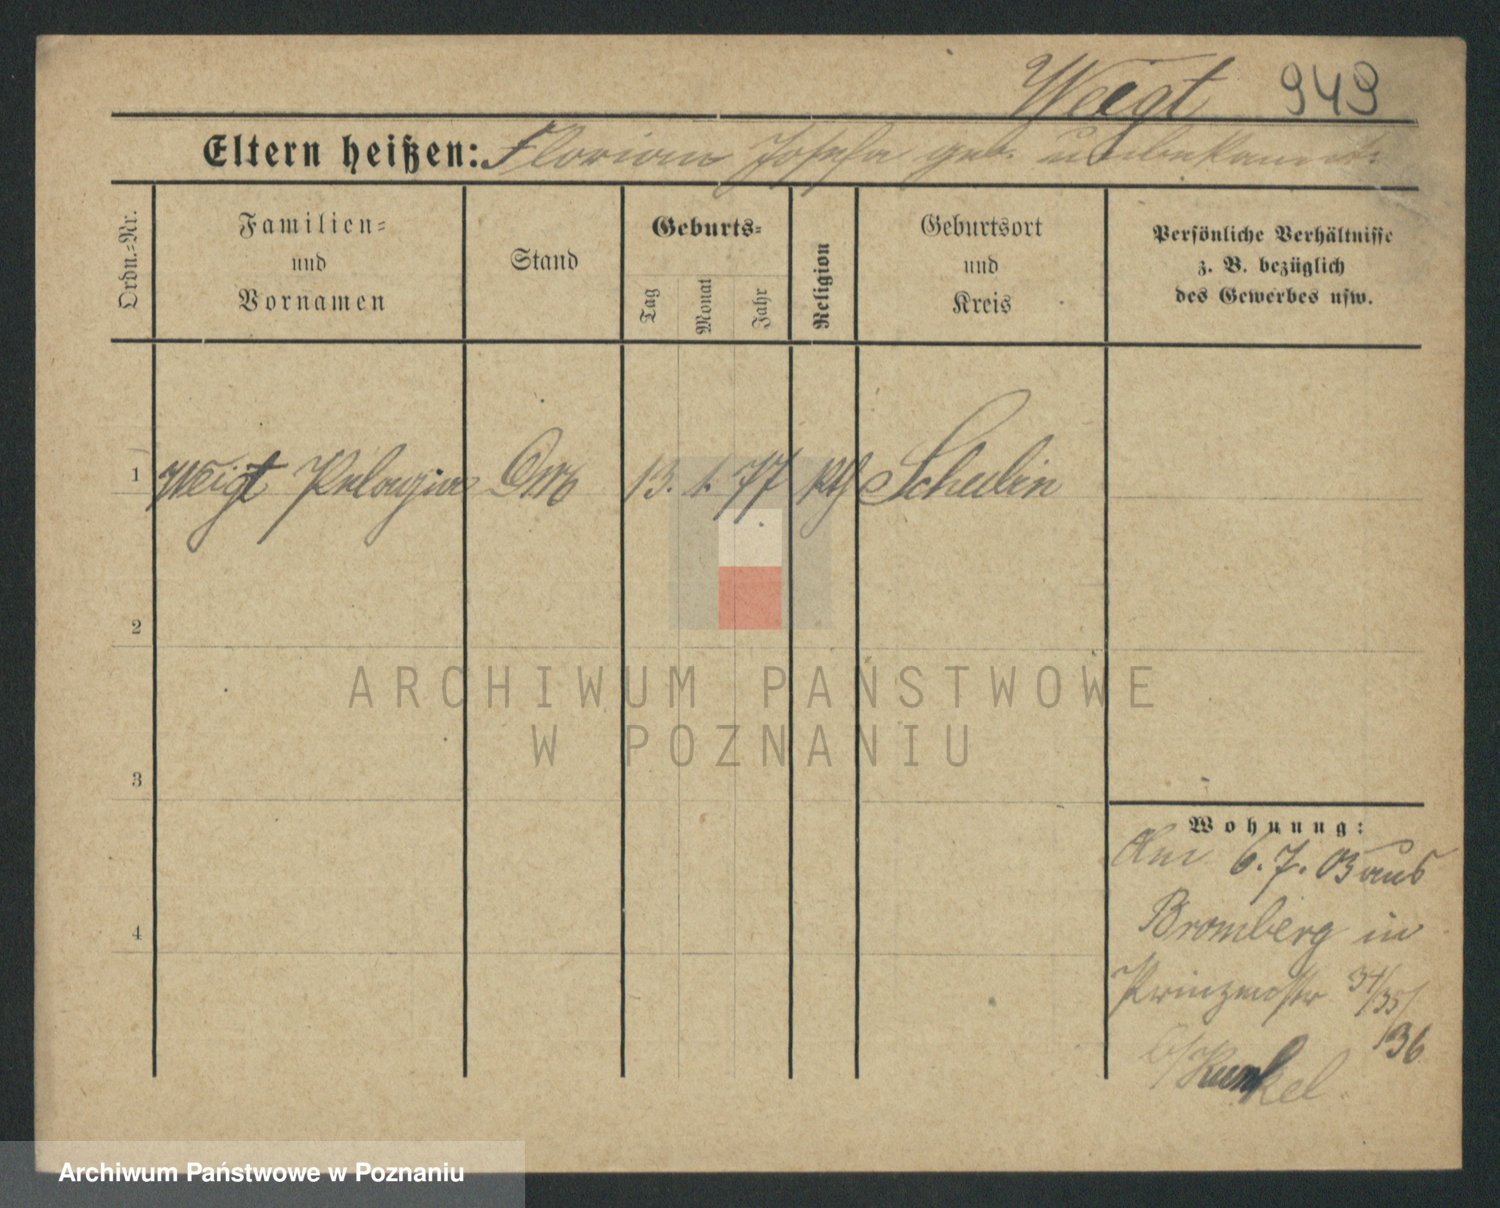 Weigt 949
Eltern heißen: Florian Josefa geb. unbekannt.
Ordn.-Nr.
Familien- und Vornamen
Stand
Geburts-
Tag Monat Jahr
Religion
Geburtsort und Kreis
Persönliche Verhältnisse
z. B. bezüglich
des Gewerbes usw.
1 Weigt Pelagia 13. 1. 77 kth Schubin
2
3
4
Wohnung:
Am 6.7.03 aus
Bromberg in
Prinzenstr 34/35/
36
b/Kunkel
ARCHIWUM PAŃSTWOWE
W POZNANIU
Archiwum Państwowe w Poznaniu